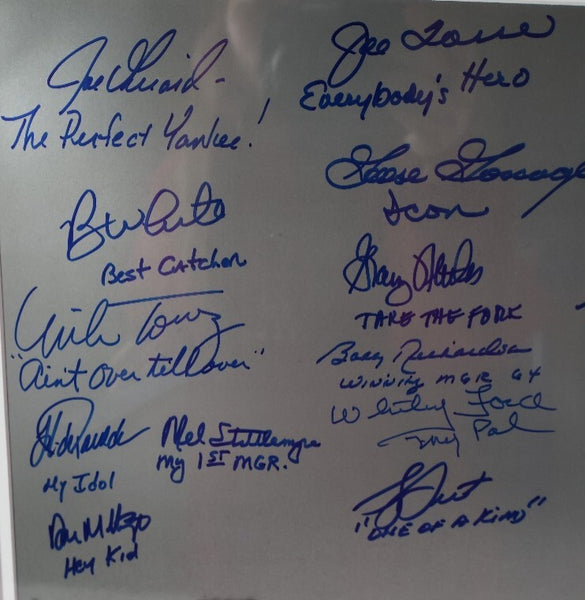 Joe Girardi -
The Perfect Yankee!
B White
Best Catcher
"Ain't over till over"
My Idol
Mel Stottlemyre
My 1ST MGR.
Hey Kid
Joe Torre
Everybody's Hero
Goose Gossage
Icon
TAKE THE FORK
Bobby Richardson
WINNING MGR 64
Whitey Ford
My Pal
"ONE OF A KIND"